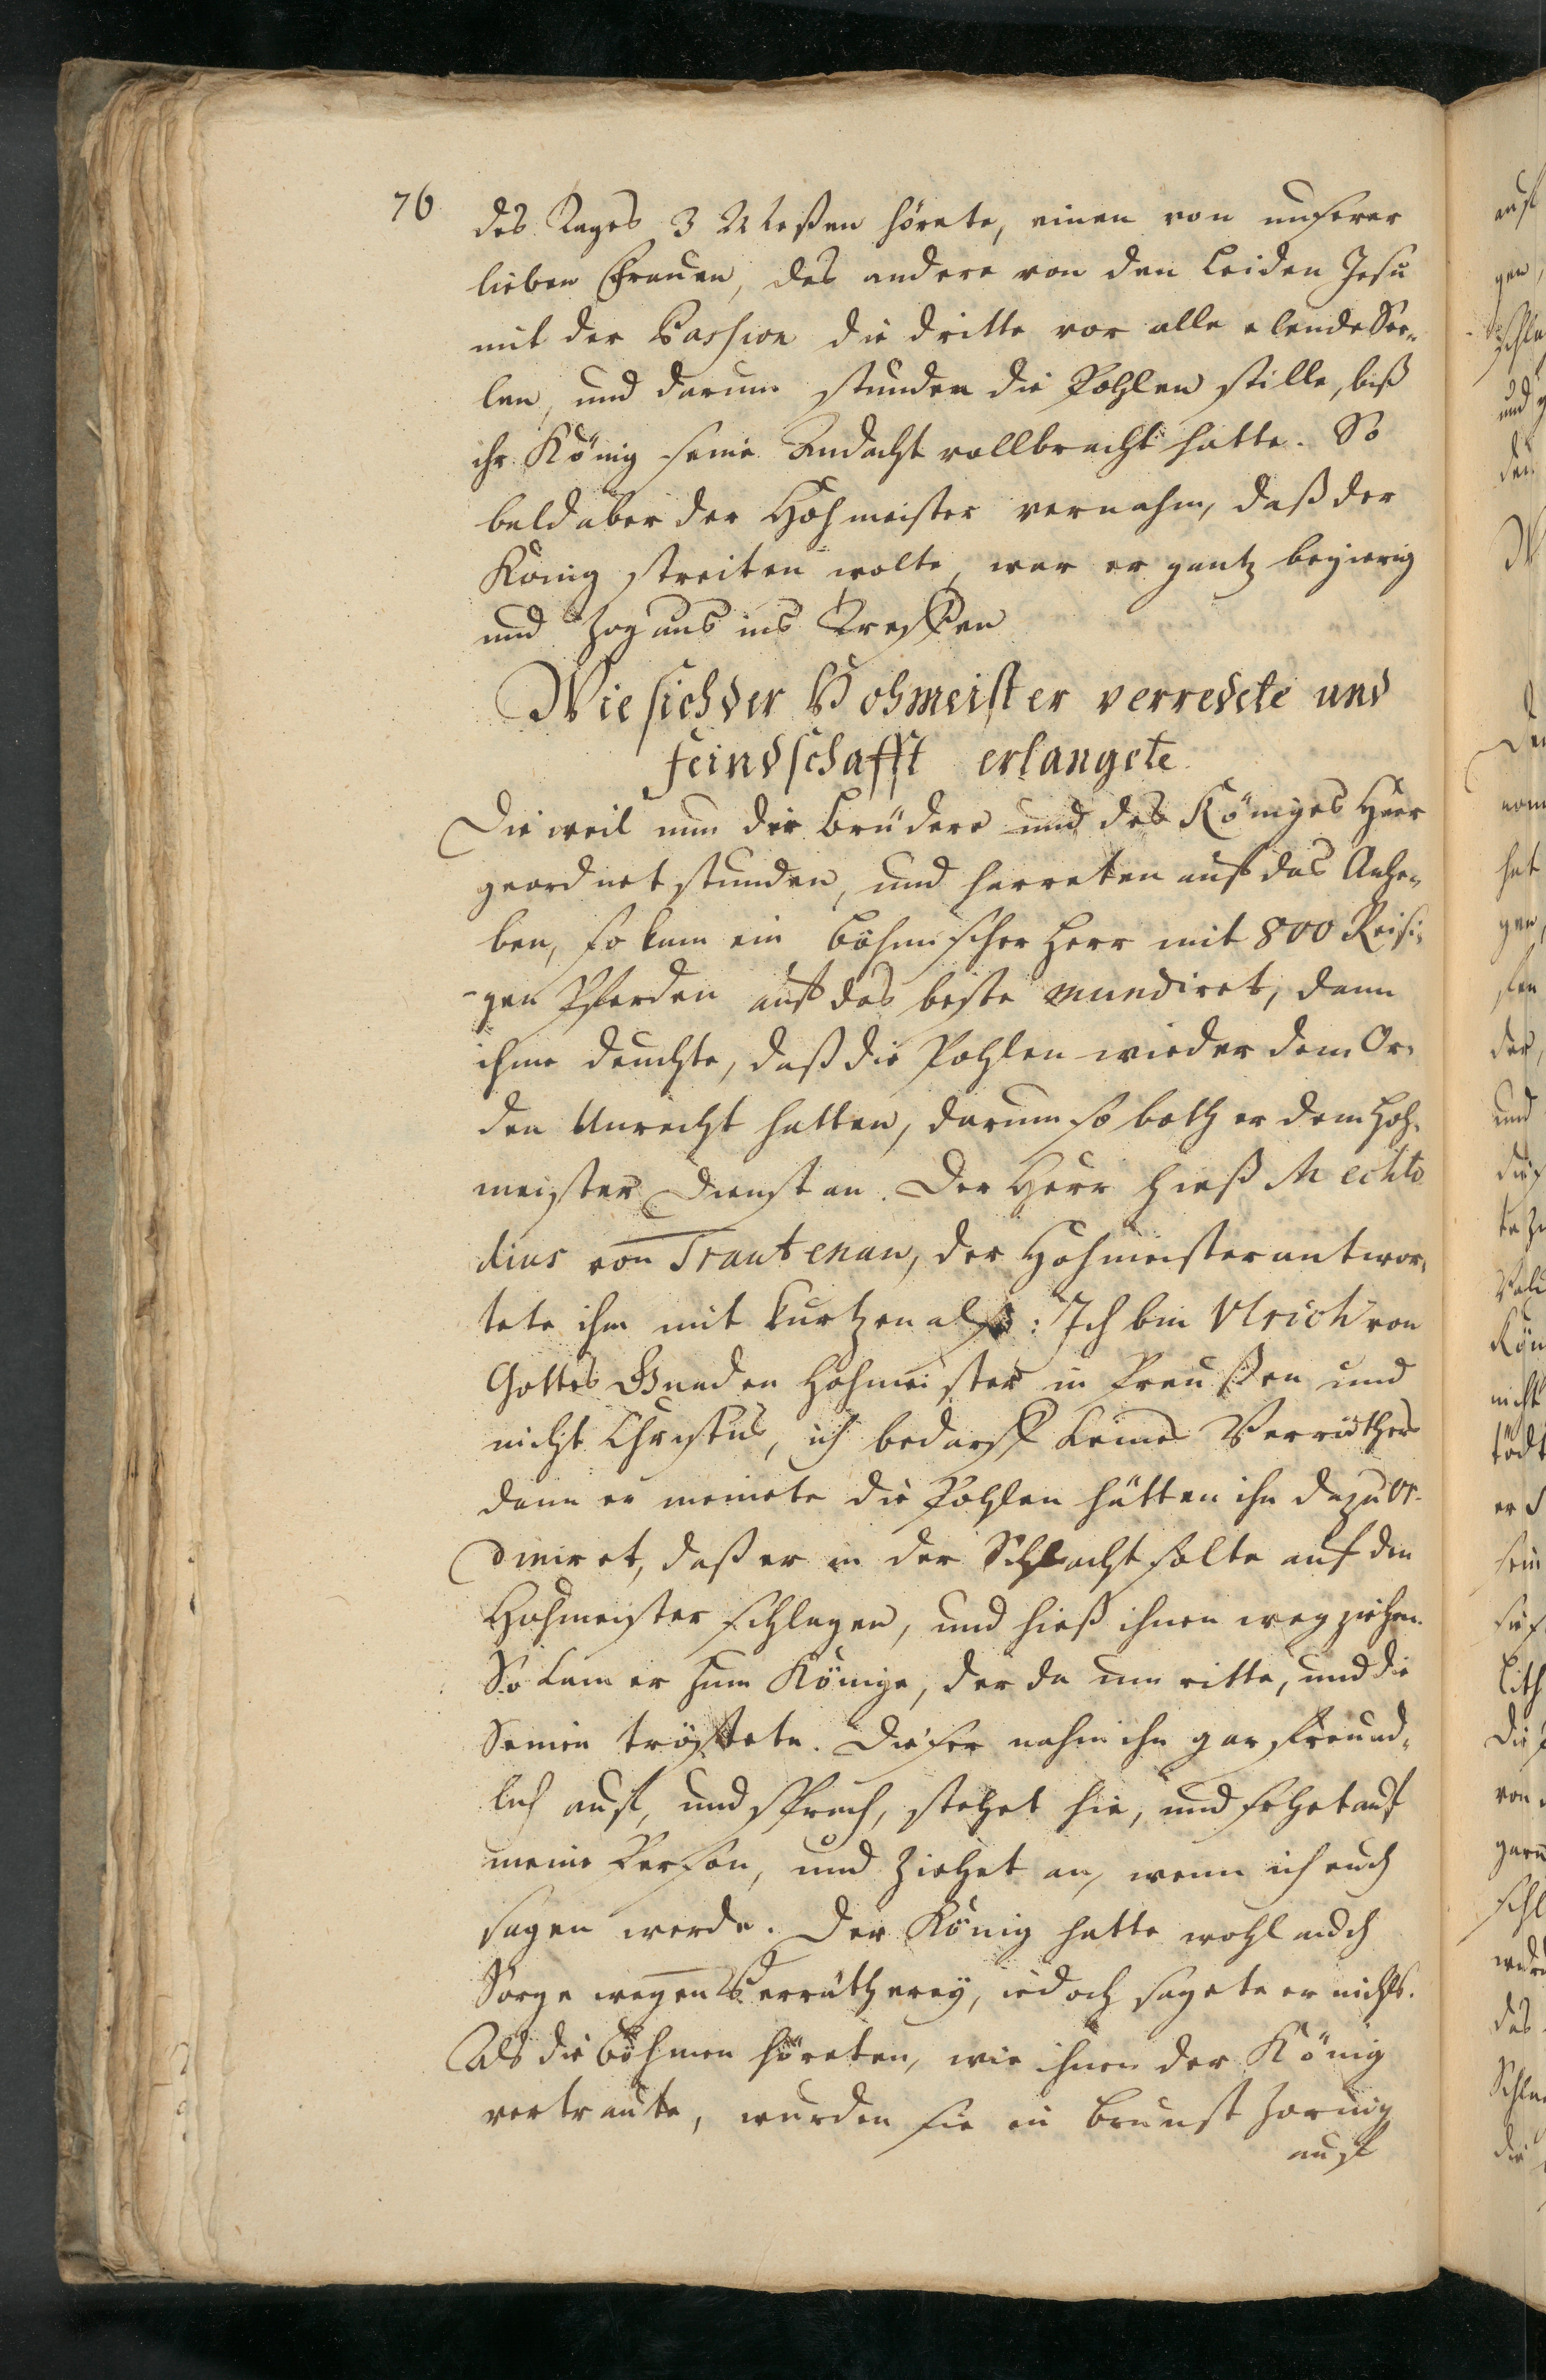 76
des Tages 3 Meßen hörete, einen von unserer
lieben Frauen, des andere von den Leiden Jesu
mit der Passion die dritte vor alle elende See-
len, und darum stunden die Pohlen stille, biß
ihr König seine Andacht vollbracht hatte. So
bald aber der Hohmeister vernahm, daß der
König streiten wolte, war er gantz begierig
und zog aus ins Treffen
Wie sich der Hohmeister verredete und
feindschafft erlangete
Die weil nun die Brüdere und des Königes Heer
geordnet stunden, und harreten auf das Anhe-
ben, so kam ein böhmischer Herr mit 800 Reisi-
-gen Pferden auf das beste mundiret, dann
ihme deuchte, daß die Pohlen wieder dem Or-
den Unrecht hatten, darum so both er dem Hoh-
meister Dienst an. Der Herr hieß Mechto
dius von Trautenau, der Hohmeister antwor-
tete ihm mit kurtzen also: Ich bin Ulrich von
Gottes Gnaden Hohmeister in Preußen und
nicht Christus, ich bedarff keines Verräthers
dann er meinete die Pohlen hätten ihn dazu or-
diniret, daß er in der Schlacht solte auf den
Hohmeister schlagen, und hieß ihnen weg ziehen.
So kam er zum Könige, der da um ritte, und die
Seinen tröstete. Dieser nahm ihn gar freund-
lich auf, und sprach, stehet hie, und sehet auf
meine Person, und ziehet an, wenn ich euch
sagen werde. Der König hatte wohl auch
Sorge wegen Verrätherey, iedoch sagete er nichts.
Als die Böhmen höreten, wie ihnen der König
vertraute, wurden sie in Brunst zornig
auf